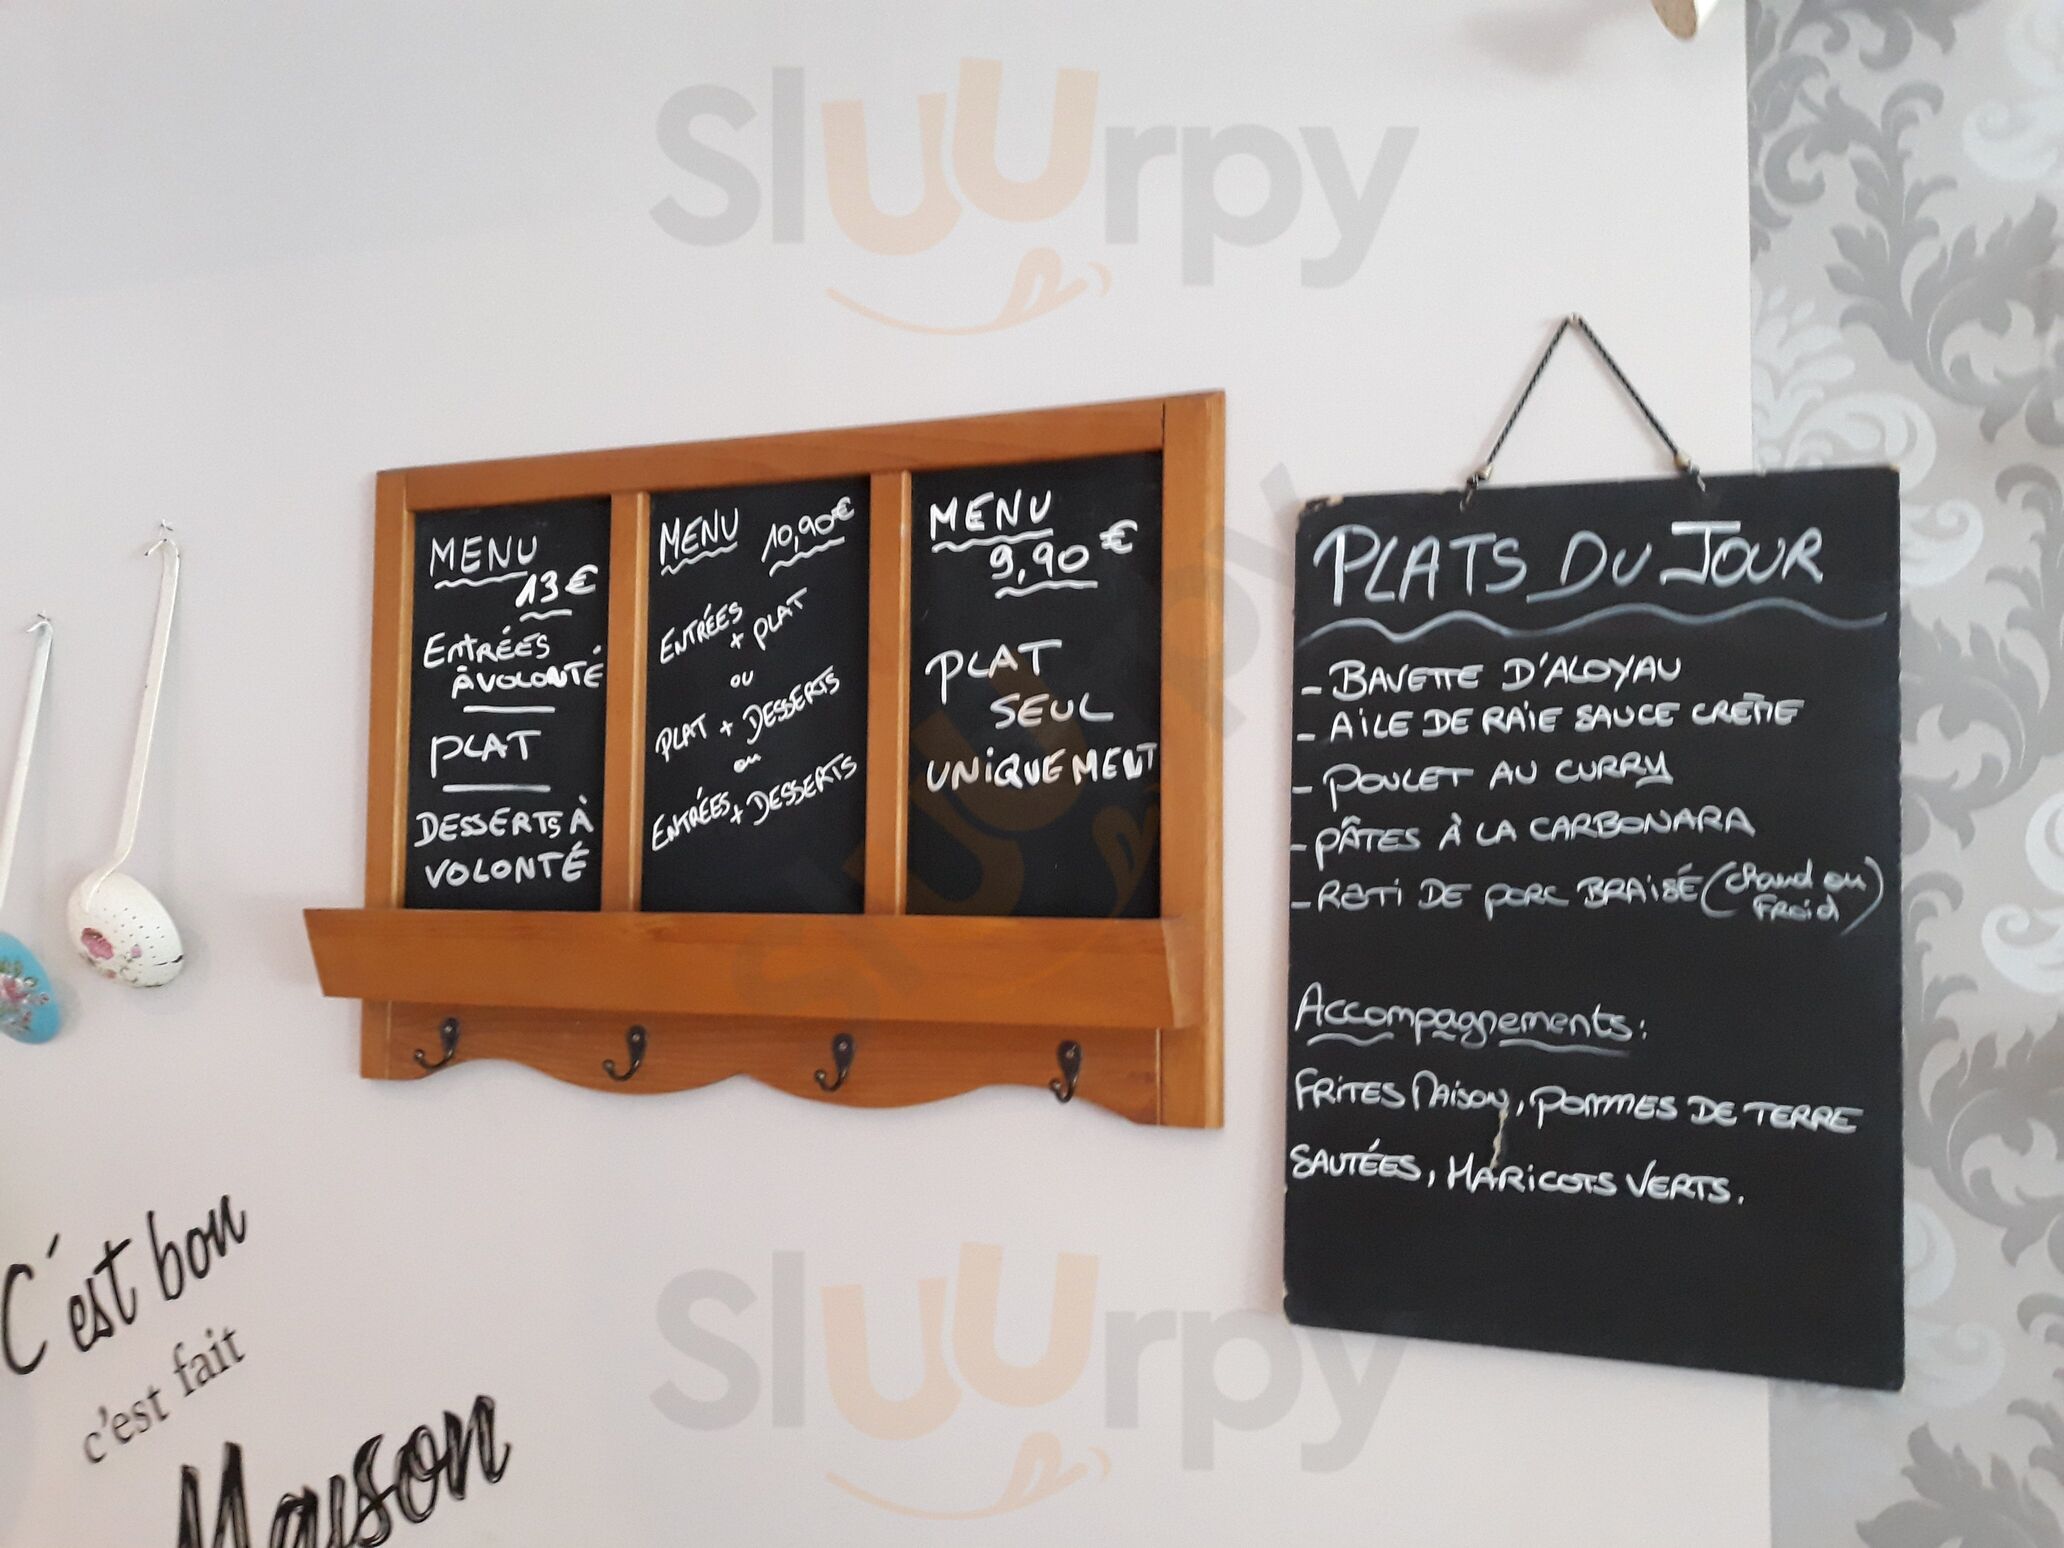 Sluurpy
MENU
13€
ENTRÉES
À VOLONTÉ
PLAT
DESSERTS À
VOLONTÉ
MENU 10,90€
ENTRÉES
+ PLAT
ou
PLAT + DESSERTS
ou
ENTRÉES + DESSERTS
MENU
9,90€
PLAT
SEUL
UNIQUEMENT
PLATS DU JOUR
- BAVETTE D'ALOYAU
- AILE DE RAIE SAUCE CRÈME
- POULET AU CURRY
- PÂTES À LA CARBONARA
- ROTI DE PORC BRAISÉ (chaud ou
Froid)
Accompagnements:
FRITES MAISON, POMMES DE TERRE
SAUTÉES, HARICOTS VERTS.
C'est bon
c'est fait
Maison
Sluurpy
Sluurpy